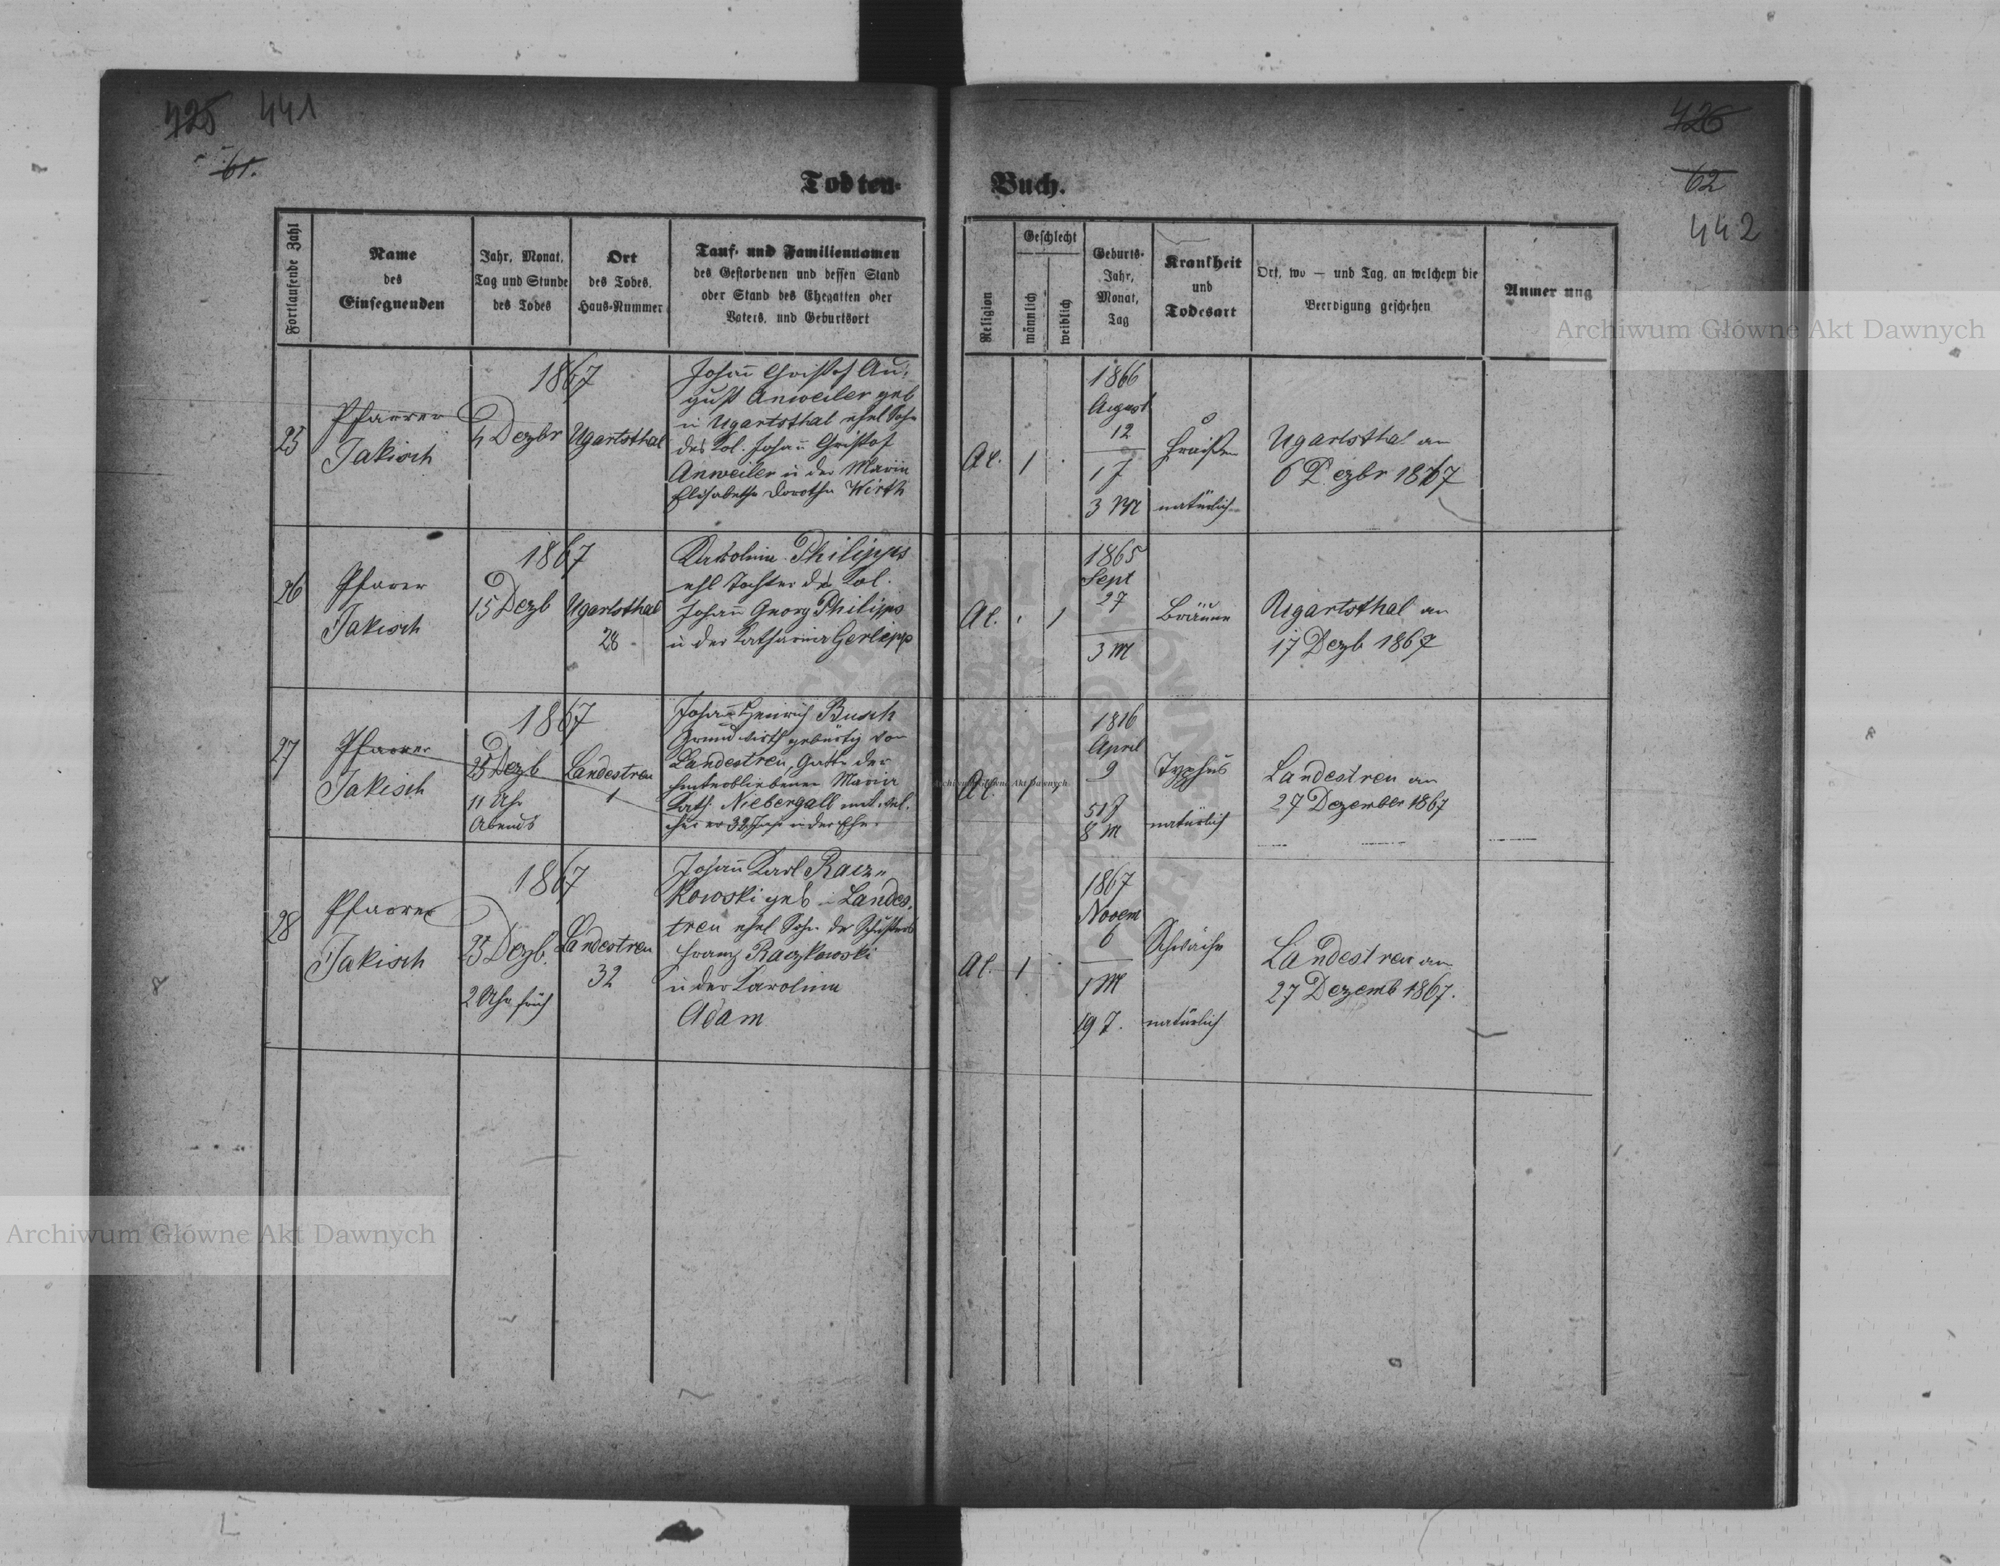 425 441
61.
426
62
442
Todten-
Buch.
Fortlaufende Zahl
Name
des
Einsegnenden
Jahr, Monat,
Tag und Stunde
des Todes
Ort
des Todes,
Haus-Nummer
Tauf- und Familiennamen
des Gestorbenen und dessen Stand
oder Stand des Ehegatten oder
Vaters, und Geburtsort
Religion
Geschlecht
männlich
weiblich
Geburts-
Jahr,
Monat,
Tag
Krankheit
und
Todesart
Ort, wo — und Tag, an welchem die
Beerdigung geschehen
Anmer ung
25
Pfarrer
Jakisch
1867
4 Dezbr
Ugartsthal
Johann Christof Au-
gust Anweiler geb
in Ugartsthal ehel Sohn
des Kol. Johann Christof
Anweiler u der Maria
Elisabetha Dorothe Wirth
AC.
1
1866
August
12
1 J
3 M
Fraisen
natürlich
Ugartsthal an
6 Dezbr 1867
26
Pfarrer
Jakisch
1867
15 Dezb
Ugartsthal
28
Karolina Philipps
ehl Tochter des Kol.
Johann Georg Philipps
u der Katharina Gerlepp
AC.
1
1865
Sept
27
3 M
Bräune
Ugartsthal an
17 Dezb 1867
27
Pfarrer
Jakisch
1867
25 Dezb
11 Uhr
Abends
Landestreu
1
Johann Heinrich Busch
Grundwirth gebürtig von
Landestreu, Gatte der
hinterbliebenen Maria
Kath. Niebergall mit wel-
cher er 32 Jahr in der Ehe
AC.
1
1816
April
9
51 J
8 M
Typhus
natürlich
Landestreu an
27 Dezember 1867
28
Pfarrer
Jakisch
1867
25 Dezb.
2 Uhr früh
Landestreu
32
Johann Karl Racz-
kowski geb in Landes-
treu ehel Sohn des Schusters
Franz Raczkowski
u der Karolina
Adam
AC.
1
1867
Novem
6
1 M
19 T.
Schwäche
natürlich
Landestreu an
27 Dezemb 1867.
Archiwum Główne Akt Dawnych
Archiwum Główne Akt Dawnych
Archiwum Główne Akt Dawnych